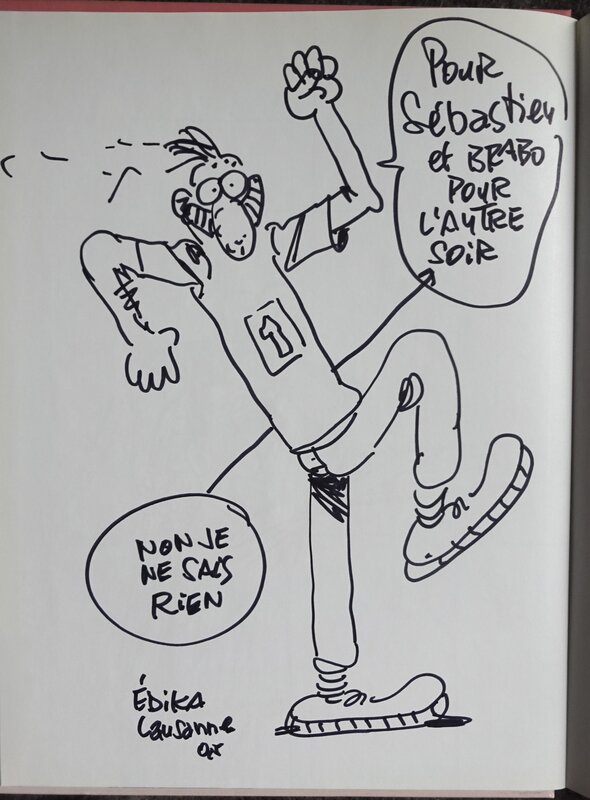 POUR
Sébastien
et BRABO
POUR
L'AUTRE
SOIR
1
NON JE
NE SAIS
RIEN
ÉDIKA
Lausanne